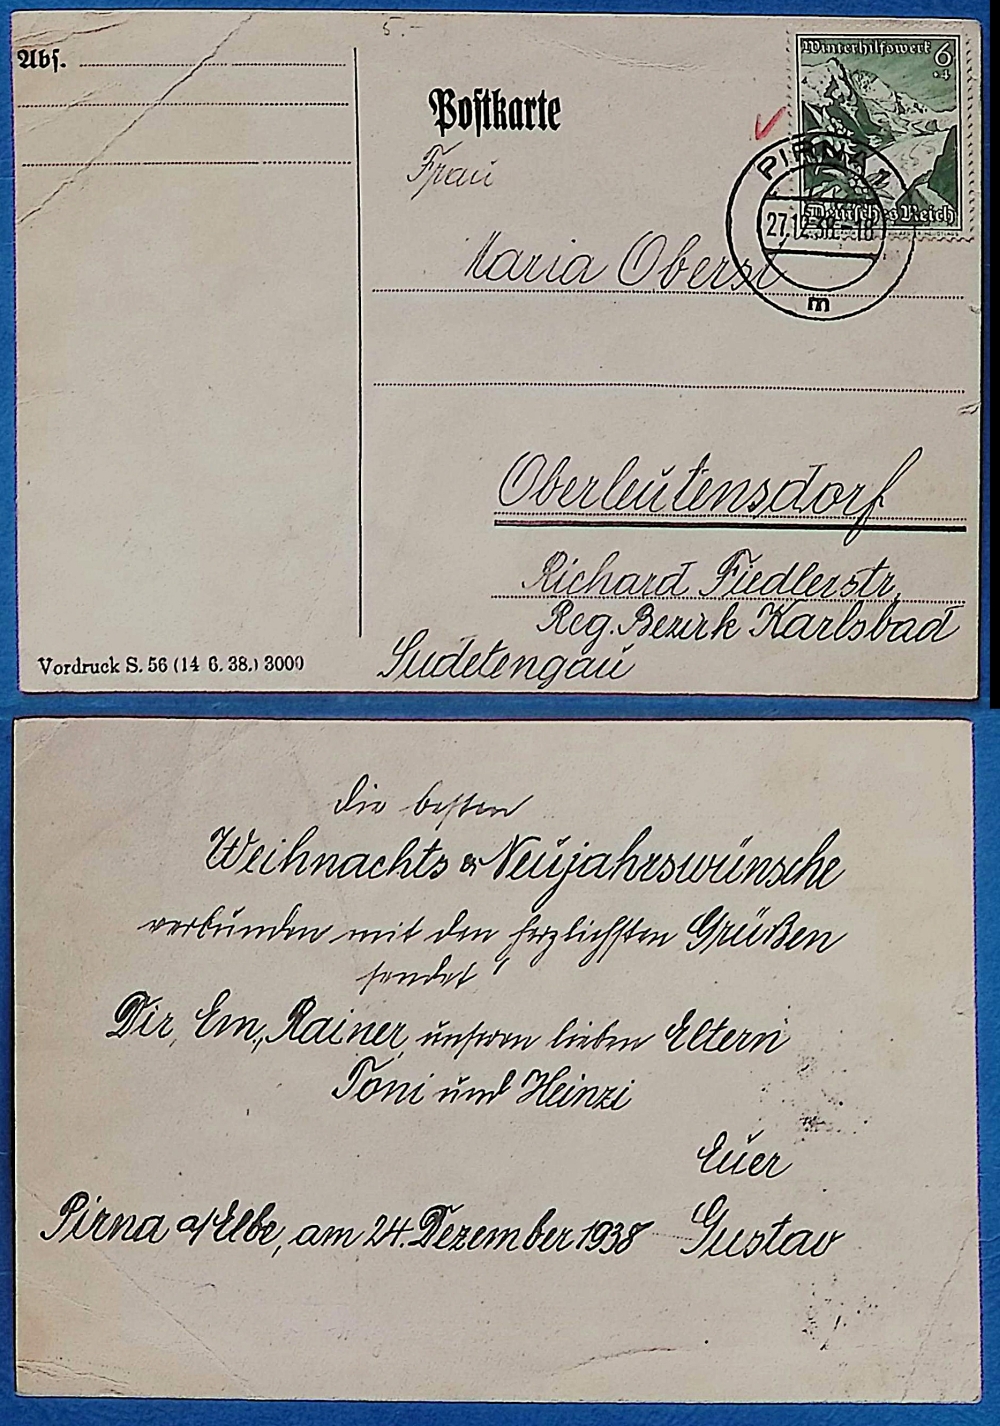 5.-
Abs.
Postkarte
Winterhilfswerk 6
+4
Deutsches Reich
PIRNA 1
27.12.38.-18
m
Frau
Maria Oberst
Oberleutensdorf
Richard Fiedlerstr.
Reg. Bezirk Karlsbad
Sudetengau
Vordruck S. 56 (14 6. 38.) 3000
Die besten
Weihnachts & Neujahrswünsche
verbunden mit den herzlichsten Grüßen
sendet
Dir, Em., Rainer, unseren lieben Eltern
Toni und Heinzi
Euer
Pirna a/Elbe, am 24. Dezember 1938 Gustav